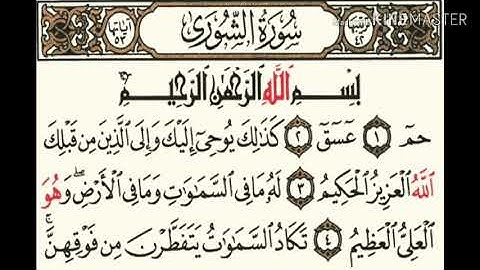 سُورَةُ الشُّورَىٰ
آيَاتُهَا ٥٣
KINEMASTER
بِسْمِ ٱللَّهِ ٱلرَّحْمَٰنِ ٱلرَّحِيمِ
حمٓ ١ عٓسٓقٓ ٢ كَذَٰلِكَ يُوحِىٓ إِلَيْكَ وَإِلَى ٱلَّذِينَ مِن قَبْلِكَ
ٱللَّهُ ٱلْعَزِيزُ ٱلْحَكِيمُ ٣ لَهُۥ مَا فِى ٱلسَّمَٰوَٰتِ وَمَا فِى ٱلْأَرْضِ ۖ وَهُوَ
ٱلْعَلِىُّ ٱلْعَظِيمُ ٤ تَكَادُ ٱلسَّمَٰوَٰتُ يَتَفَطَّرْنَ مِن فَوْقِهِنَّ ۚ